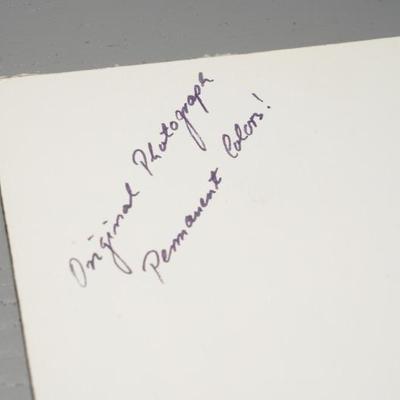 Original Photograph
Permanent Colors!